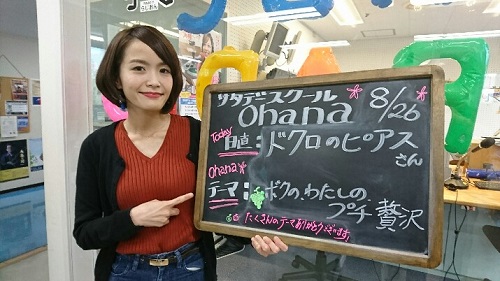 サタデースクール
Ohana
8/26
Today
日直:ドクロのピアス
さん
Ohana
テーマ:ボクの、わたしの、
プチ贅沢
たくさんのテーマありがとうございます。